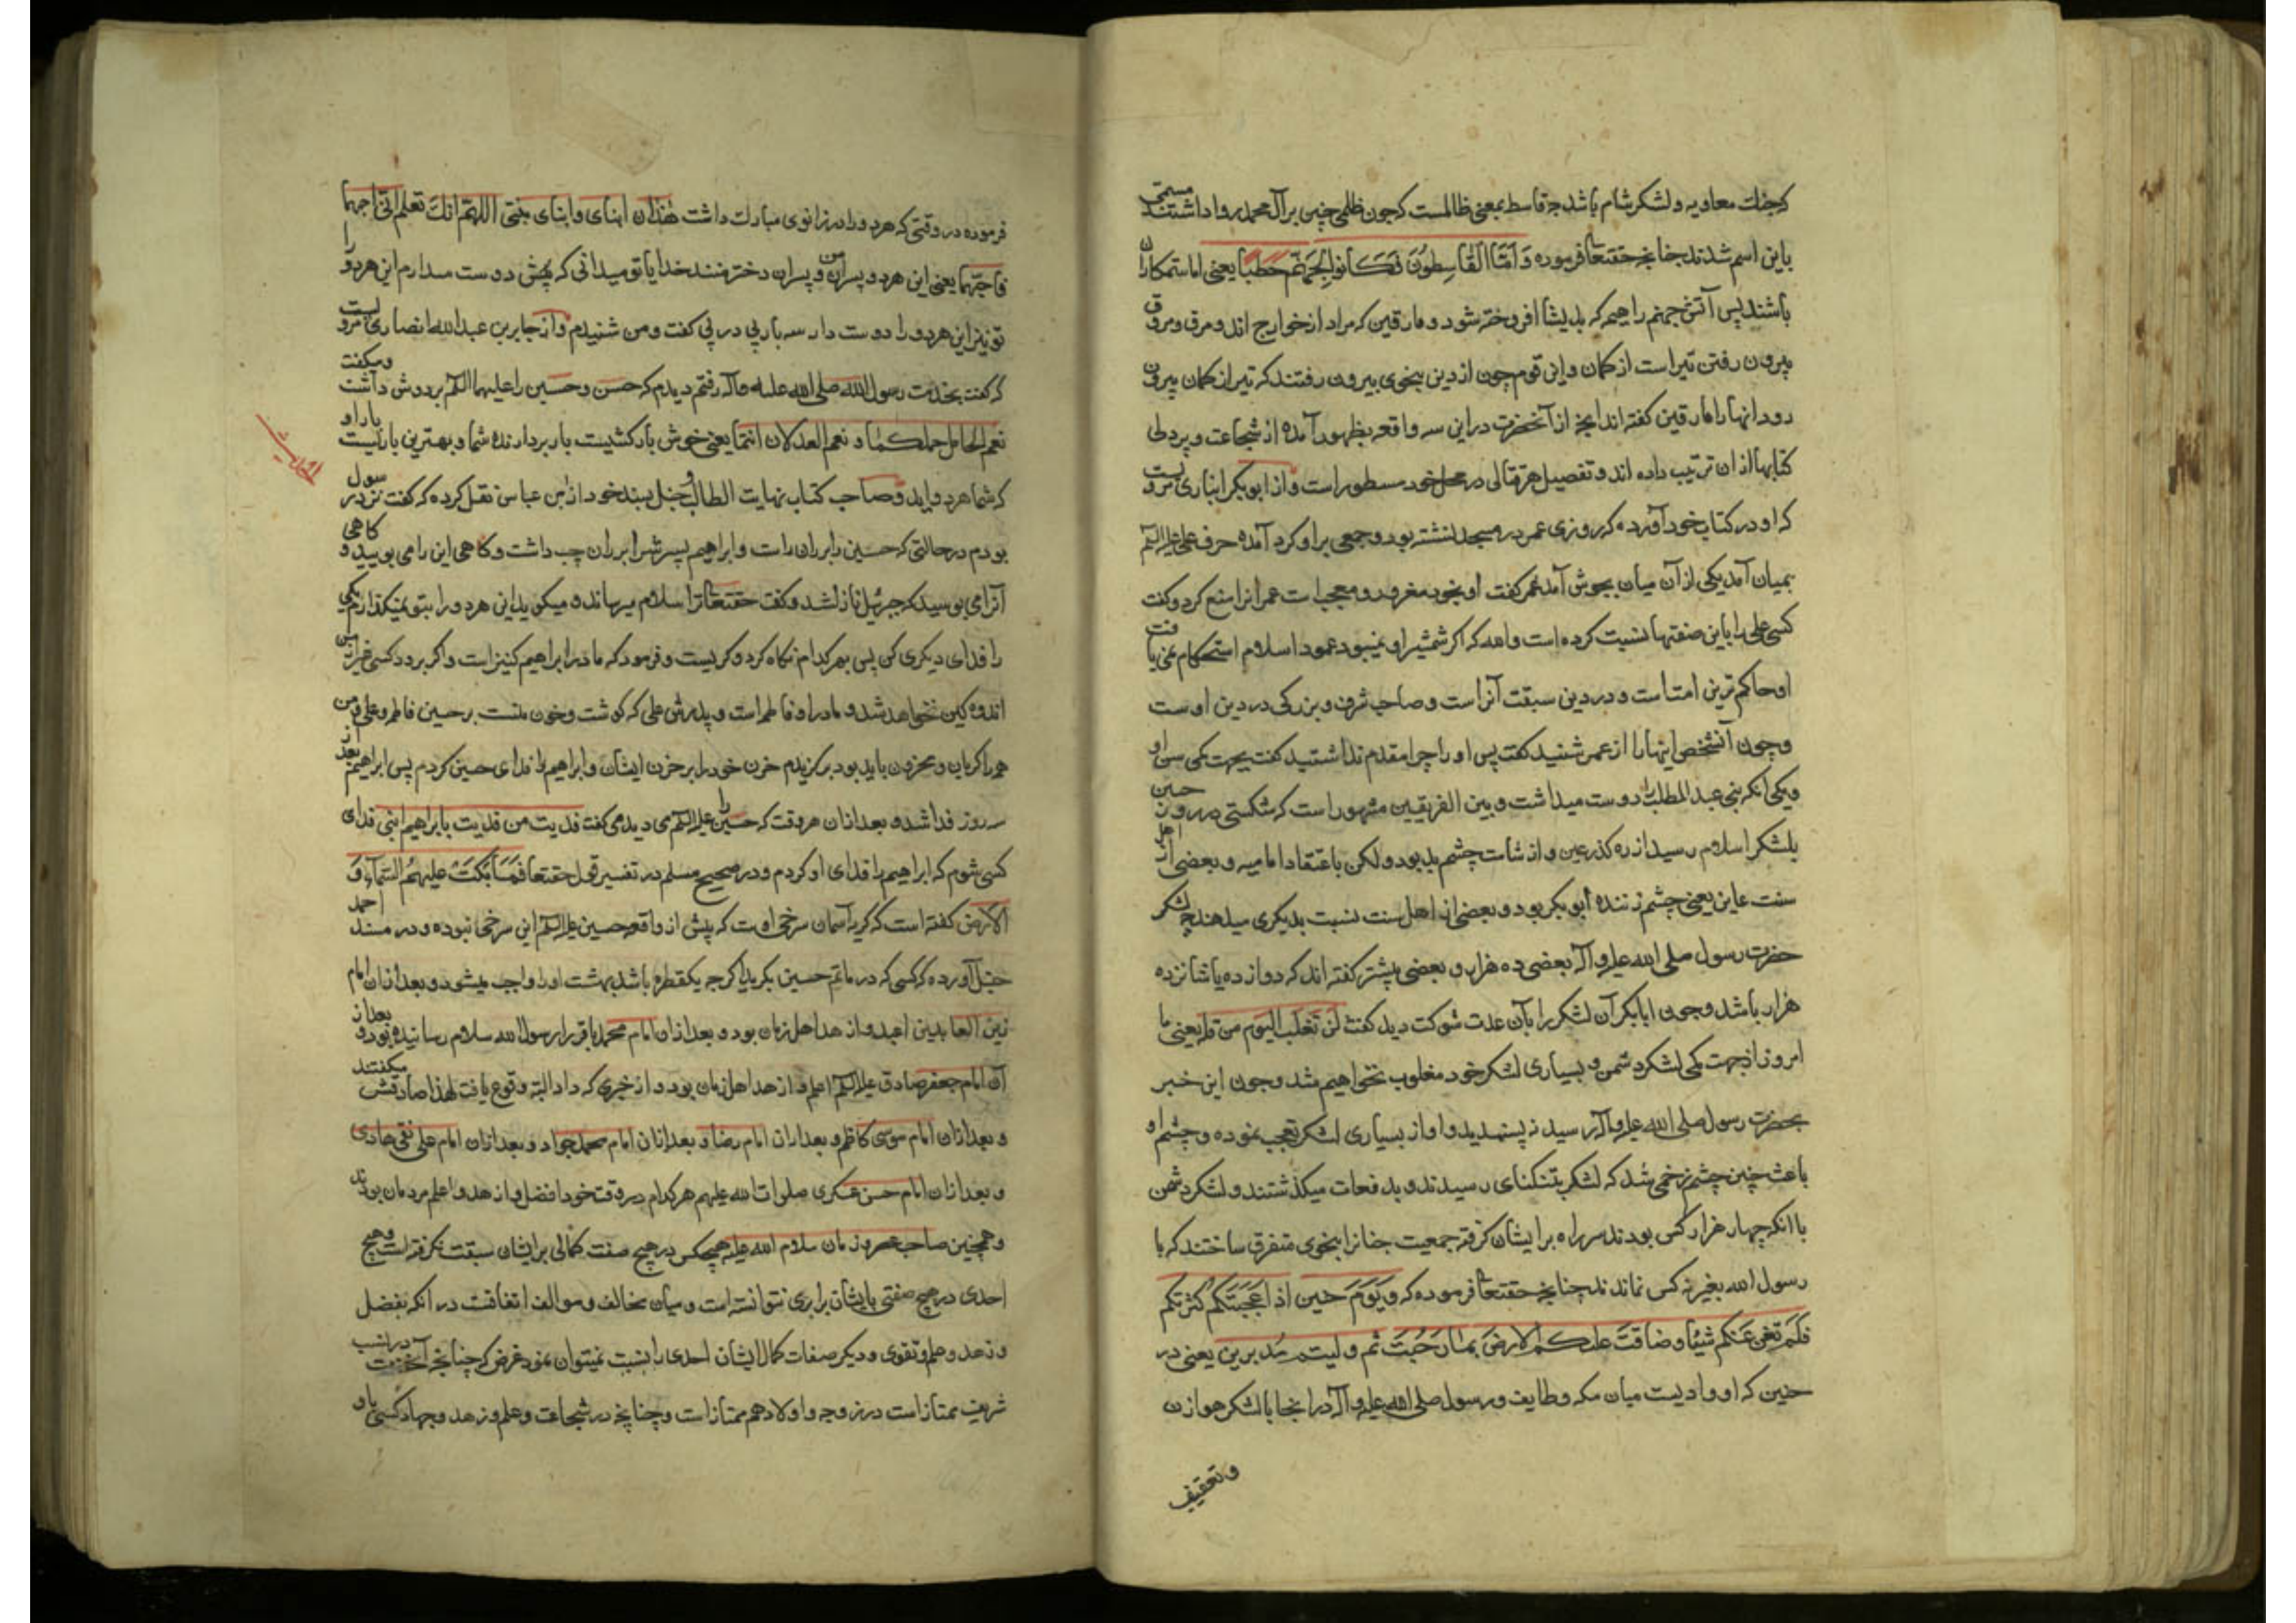 که جنك معاویه و لشکر شام باشد چه قاسط بمعنی ظالمست که چون ظلمی چنین بر آل محمد روا داشتند مسمی
باین اسم شدند چنانچه حقتعا فرموده وَ اَمَّا الْقَاسِطُونَ فَكَانُوا لِجَهَنَّمَ حَطَبًا یعنی اما ستمکاران
باشند پس آتش جهنم را هیمه که بدیشا افروخته شود و مارقین که مراد از خوارج اند و مرق و مروق
بیرون رفتن تیر است از کمان و این قوم چون از دین بنحوی بیرون رفتند که تیر از کمان بیرون
رود انها را مارقین گفته اند انچه از آنحضرت در این سه واقعه بظهور آمده از شجاعت و پردلی
کتابها از ان ترتیب داده اند و تفصیل هر قتالی در محل خود مسطور است و از ابو بکر انباری مرویست
که او در کتاب خود آورده که روزی عمر در مسجد نشسته بود و جمعی بر او کرد آمده حرف علی علیه السلم
بمیان آمد یکی از آن میان بجوش آمد عمر کفت او بخود مغرور و معجب است عمر انرا منع کرد و کفت
کسی علی را باین صفتها نسبت کرده است والله که اکر شمشیر او نمیبود عمود اسلام استحکام نمی یافت
او حاکم ترین امت است و در دین سبقت آنراست و صاحب شرف و بزرکی در دین اوست
و چون آنشخص اینها را از عمر شنید کفت پس او را چرا مقدم نداشتید کفت بجهت کمی سن او
و یکی انکه بنی عبد المطلب را دوست میداشت و بین الفریقین مشهور است که شکستی در روز حنین
بلشکر اسلام رسید از ره کذر عین و از شامت چشم بد بود و لکن باعتقاد امامیه و بعضی از اهل
سنت عاین یعنی چشم زننده ابو بکر بود و بعضی از اهل سنت نسبت بدیکری میدهند چه لشکر
حضرت رسول صلی الله علیه و آله بعضی ده هزار و بعضی بیشتر کفته اند که دوازده یا شانزده
هزار باشد و چون ابابکر آن لشکر را بآن عدت شوکت دید کفت لن تغلب الیوم من قلة یعنی ما
امروز از جهت کمی لشکر دشمن و بسیاری لشکر خود مغلوب نخواهیم شد و چون این خبر
بحضرت رسول صلی الله علیه و آله رسید نه پسندید و او از بسیاری لشکر تعجب نموده و چشم او
باعث چنین چشم زخمی شد که لشکر بتنکنای رسیدند و بدفعات میکذشتند و لشکر دشمن
با انکه چهار هزار کس بودند سر راه بر ایشان کرفته جمعیت جفا را بنحوی متفرق ساختند که با
رسول الله بغیر نه کس نماندند چنانچه حقتعا فرموده که وَ یَوْمَ حنین اذ اَعْجَبَتْكُمْ كثرتكم
فَلَمْ تغنِ عَنكم شیئا و ضاقَتْ علیكم الارض بما رَحُبَتْ ثم ولیتم مُدبرین یعنی در
حنین که او وادیست میان مکه و طایف و رسول صلی الله علیه و آله در انجا با لشکر هوازن
و تعقیف
فرموده در وقتی که هر دو را در زانوی مبارك داشت هٰذان ابنای و ابنای بنتی اللهم انك تعلم انی احبهما
فاحبهما یعنی این هر دو پسران من و پسران دختر منند خدایا تو میدانی که من دوست میدارم این هر دو را
تو نیز این هر دو را دوست دار سه بار پی در پی کفت و من شنیدم و از جابر بن عبد الله انصاری مرویست
که کفت بخدمت رسول الله صلی الله علیه و آله رفتم دیدم که حسن و حسین را علیهما السلم بر دوش داشت و میکفت
نعم الحامل حملکما و نعم العدلان انتما یعنی خوش بار کشیست بار بردارنده شما و بهترین باریست بار او
که شما هر دو اید و صاحب کتاب نهایت الطالب و حنبل بسند خود از بن عباس نقل کرده که کفت نزد رسول
بودم در حالتی که حسین را بر ران راست و ابراهیم پسرش را بر ران چپ داشت و کاهی این را می بویید و کاهی
آنرا می بوسید که جبرئیل نازل شد و کفت حقتعا ترا سلام میرساند و میکوید این هر دو را بتو نمیکذارم یکی
را فدای دیکری کن پس بهر کدام نکاه کرد و کریست و فرمود که مادر ابراهیم کنیز است و اکر بمیرد کسی غیر از من
اندوه کین نخواهد شد و مادر او فاطمه است و پدرش علی که کوشت و خون منست بر حسین فاطمه و علی و من
همه را کریان و محزون باید بود برکزیدم حزن خود را بر حزن ایشان و ابراهیم را فدای حسین کردم پس ابراهیم بعد از
سه روز فدا شد و بعد از ان هر وقت که حسین را علیه السلم می دید می کفت فدیت من فدیت بابراهیم ابنی فدای
کسی شوم که ابراهیم را فدای او کردم و در صحیح مسلم در تفسیر قول حقتعا فَمَا بَكَتْ علیهمُ السَّمَآءُ وَ
الاَرض کفته است که کریه آسمان سرخی اوست که پیش از واقعه حسین علیه السلم این سرخی نبوده و در مسند احمد
حنبل آورده که کسی که در ماتم حسین بکرید اکرچه یکقطره باشد بهشت او را واجب میشود و بعد از ان امام
زین العابدین اعبد و ازهد اهل زمان بود و بعد از ان امام محمد باقر را رسول الله سلام رسانیده بود و بعد از
آن امام جعفر صادق علیه السلم اعلم و ازهد اهل زمان بود و از خبری که داد البته وقوع یافت لهذا صادقش میکفتند
و بعد از ان امام موسی کاظم و بعد از ان امام رضا و بعد از ان امام محمد جواد و بعد از ان امام علی نقی هادی
و بعد از ان امام حسن عسکری صلوات الله علیهم هر کدام در وقت خود افضل و ازهد و اعلم مردمان بودند
و همچنین صاحب عصر و زمان سلام الله علیه هیچکس در هیچ صفت کمالی بر ایشان سبقت نکرفته است و هیچ
احدی در هیچ صفتی با ایشان برابری نتوانسته است و میان مخالف و موالف اتفاقست در انکه بفضل
و زهد و علم و تقوی و دیکر صفات کمال ایشان احدی را نسبت نمیتوان نمود غرض که چنانچه آنحضرت در نسب
شریف ممتاز است در زوجه و اولاد هم ممتاز است و چنانچه در شجاعت و علم و زهد و جهاد کسی باو